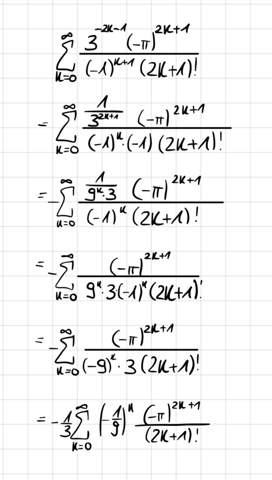 ∞∑k=0 3^(-2k-1) (-π)^(2k+1) / (-1)^(k+1) (2k+1)!
= ∞∑k=0 1/3^(2k+1) (-π)^(2k+1) / (-1)^k · (-1) (2k+1)!
= -∞∑k=0 1/(9^k · 3) (-π)^(2k+1) / (-1)^k (2k+1)!
= -∞∑k=0 (-π)^(2k+1) / 9^k · 3 (-1)^k (2k+1)!
= -∞∑k=0 (-π)^(2k+1) / (-9)^k · 3 (2k+1)!
= -1/3 ∞∑k=0 (-1/9)^k (-π)^(2k+1) / (2k+1)!